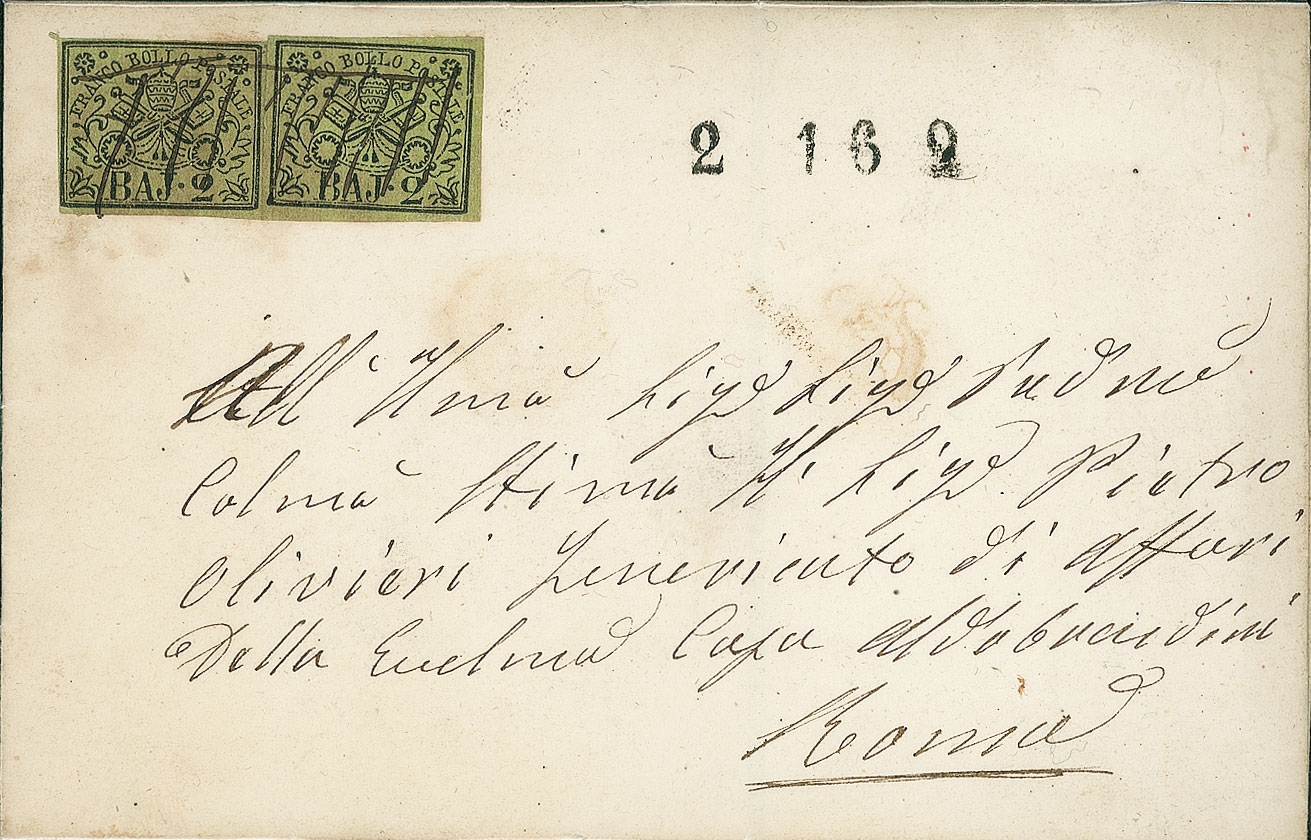 FRANCO BOLLO POSTALE
BAJ. 2
FRANCO BOLLO POSTALE
BAJ. 2
2 1 6 9
All' Illma Sigra Sigra Padrna
Colma Stima Il Sigr Pietro
Olivieri di Affari
Della Casa Aldobrandini
Roma